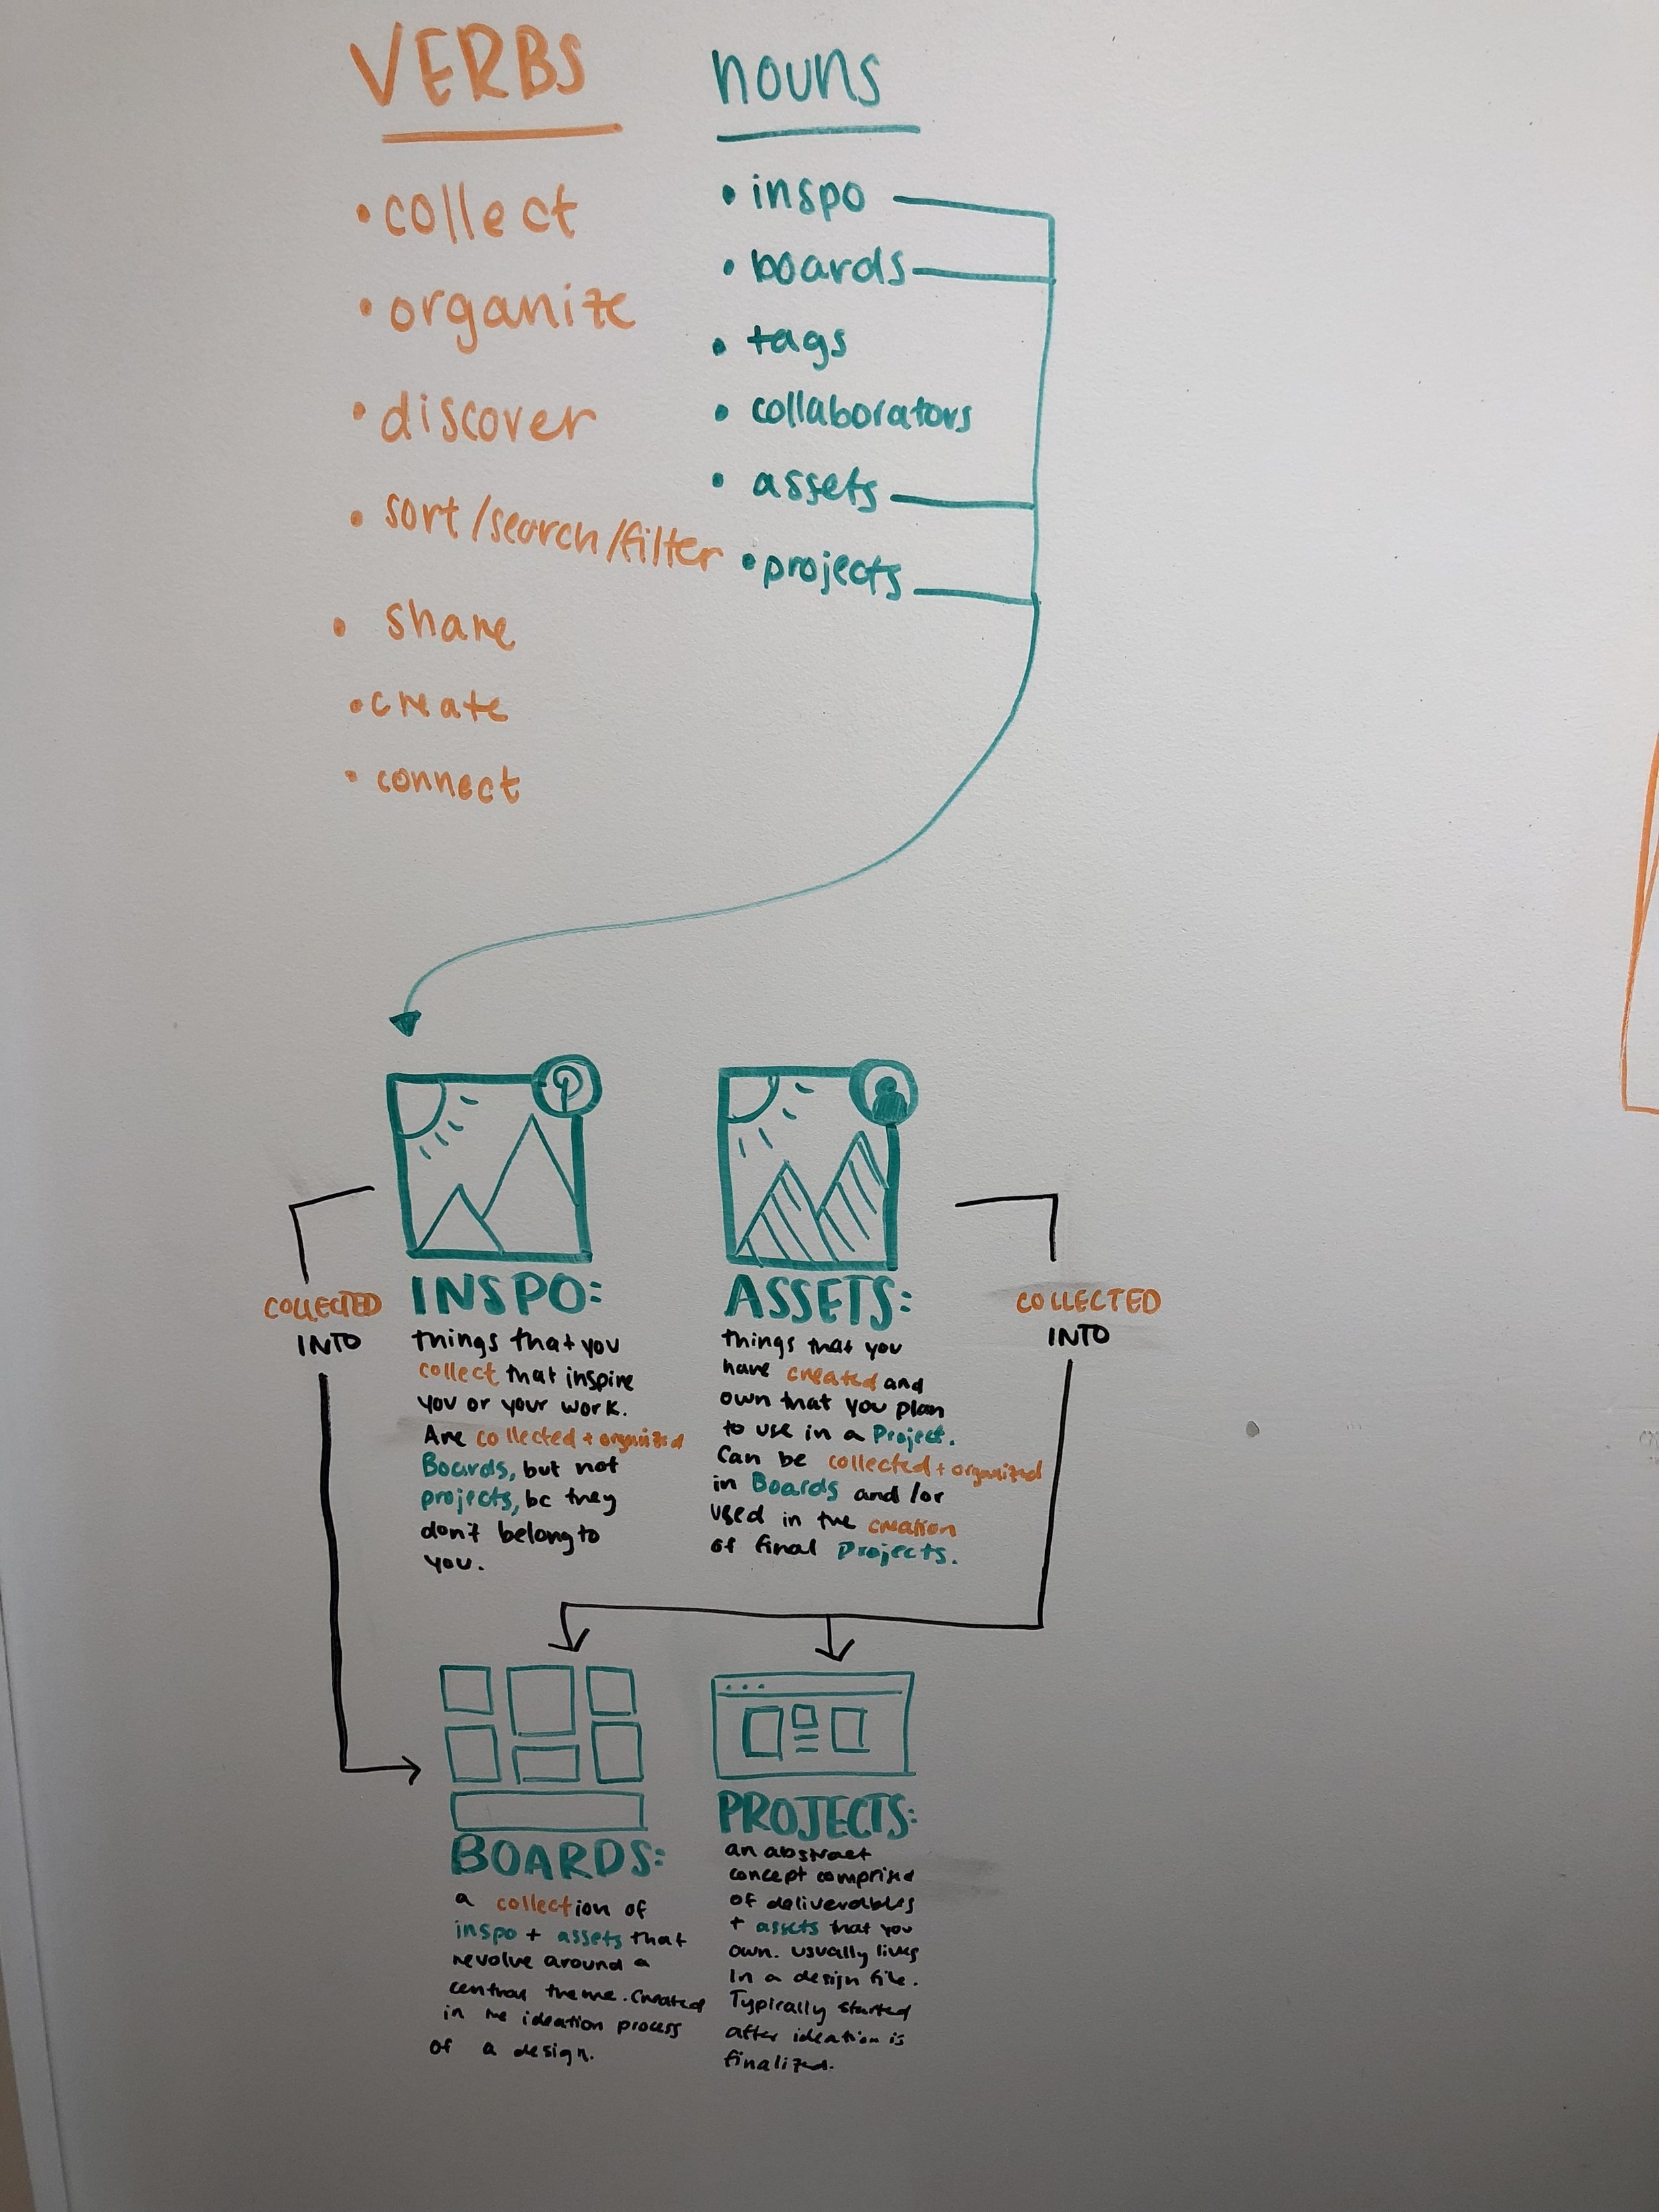 VERBS
• collect
• organize
• discover
• sort/search/filter
• share
• create
• connect
nouns
• inspo
• boards
• tags
• collaborators
• assets
• projects
COLLECTED
INTO
INSPO:
things that you
collect that inspire
you or your work.
Are collected + organized
Boards, but not
projects, bc they
don't belong to
you.
ASSETS:
things that you
have created and
own that you plan
to use in a Project.
Can be collected + organized
in Boards and/or
used in the creation
of final Projects.
COLLECTED
INTO
BOARDS:
a collection of
inspo + assets that
revolve around a
central theme. Created
in the ideation process
of a design.
PROJECTS:
an abstract
concept comprised
of deliverables
+ assets that you
own. usually lives
in a design file.
Typically started
after ideation is
finalized.